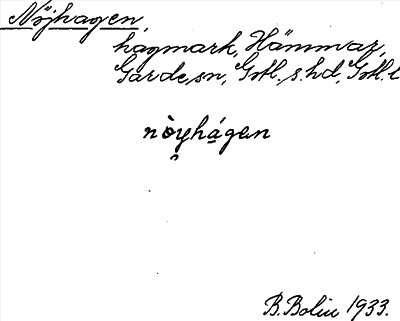 Nöjhagen,
hagmark, Hammar,
Garde sn, Gotl. s. hd, Gotl. l
nòyhágen
B. Bolin 1933.